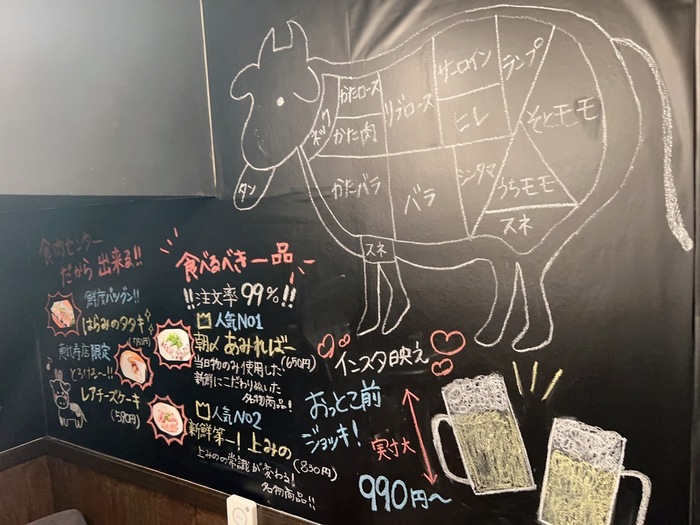 タン
ネック
かたロース
かた肉
リブロース
サーロイン
ヒレ
ランプ
そともモ
かたバラ
バラ
シンタマ
うちモモ
スネ
スネ
食肉センター
だから 出来る!!
鮮度バツグン!!
はらみのタタキ
(750円)
恵比寿店限定
とろける〜!!
レアチーズケーキ
(590円)
食べるべき一品
!!注文率99%!!
人気No1
朝〆あみればー
(650円)
当日物のみ使用した
新鮮にこだわりぬいた
名物商品!
人気No2
新鮮第一!上みの
(830円)
上みのの常識が変わる!
名物商品!!
インスタ映え
おっとこ前
ジョッキ!
実寸大
990円〜